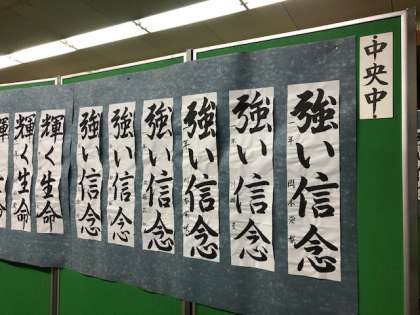 中央中
強い信念
強い信念
強い信念
強い信念
強い信念
強い信念
輝く生命
輝く生命
輝